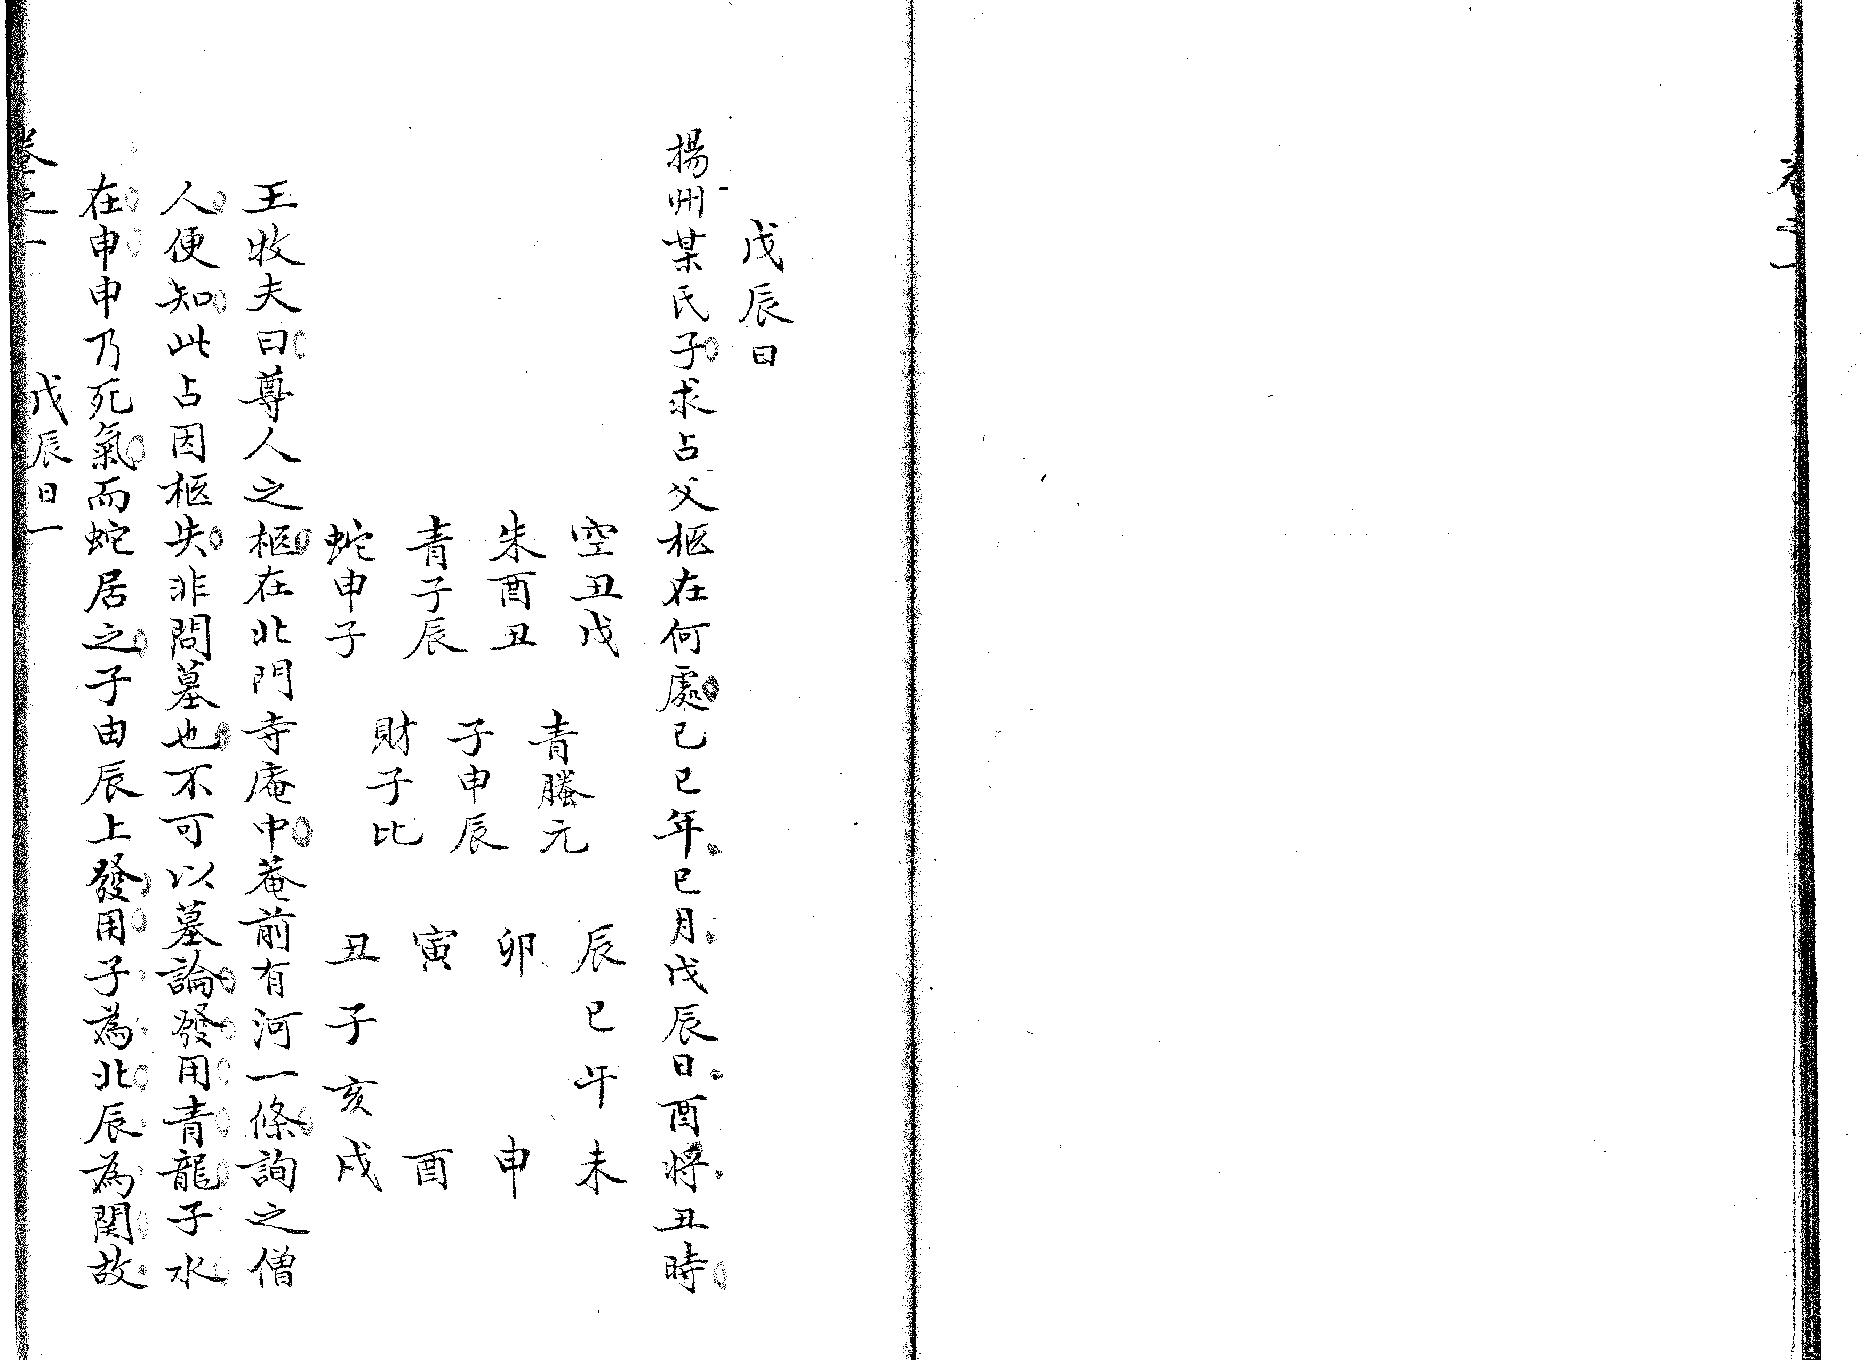 卷之一
戊辰日
揚州某氏子求占父柩在何處己巳年巳月戊辰日酉將丑時
空丑戊
朱酉丑
青子辰
蛇申子
青螣元
子申辰
財子比
辰巳午未
卯申
寅酉
丑子亥戌
王牧夫曰尊人之柩在北門寺庵中菴前有河一條詢之僧
人便知此占因柩失非問墓也不可以墓論發用青龍子水
在申申乃死氣而蛇居之子由辰上發用子為北辰為関故
卷之一 戊辰日一